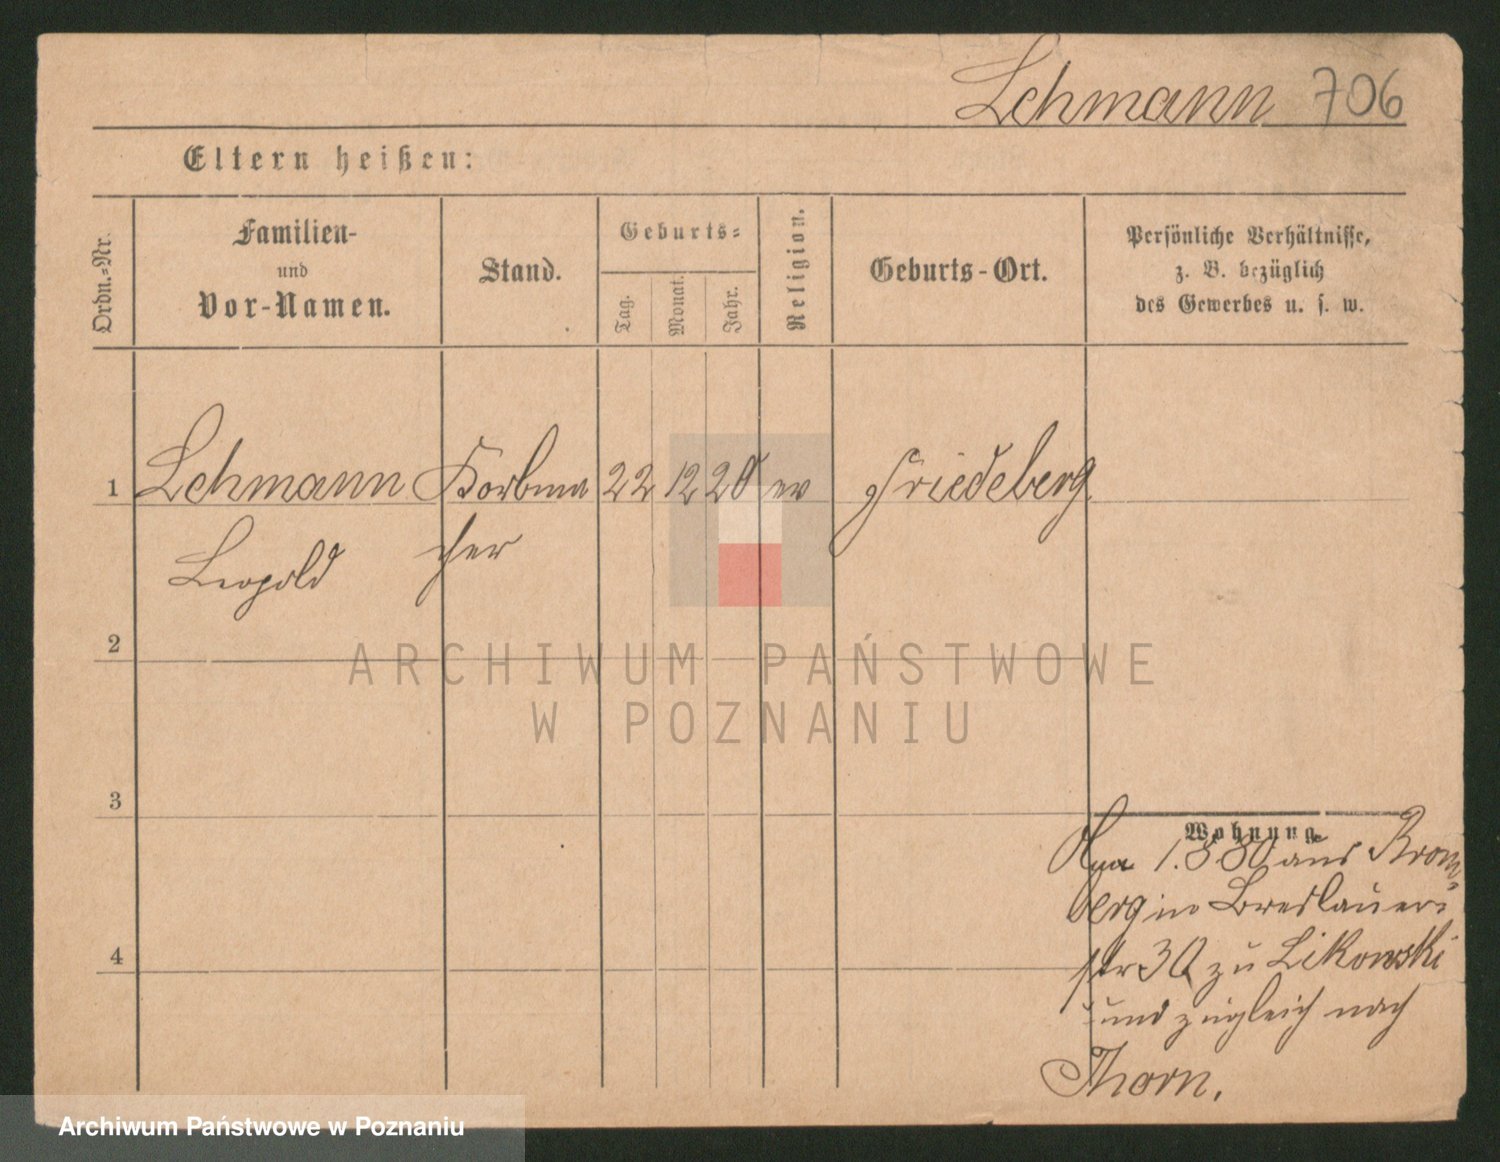 Lehmann 706
Eltern heißen:
Ordn.-Nr.
Familien-
und
Vor-Namen.
Stand.
Geburts-
Tag.
Monat.
Jahr.
Religion.
Geburts-Ort.
Persönliche Verhältnisse,
z. B. bezüglich
des Gewerbes u. s. w.
1 Lehmann Korbma 22 12 20 ev Friedeberg
Leopold cher
2
ARCHIWUM PAŃSTWOWE
W POZNANIU
3
Wohnung
1.880 aus Brom-
berg in Breslauer-
str 30 zu Likowski
und zugleich nach
4
Thorn.
Archiwum Państwowe w Poznaniu